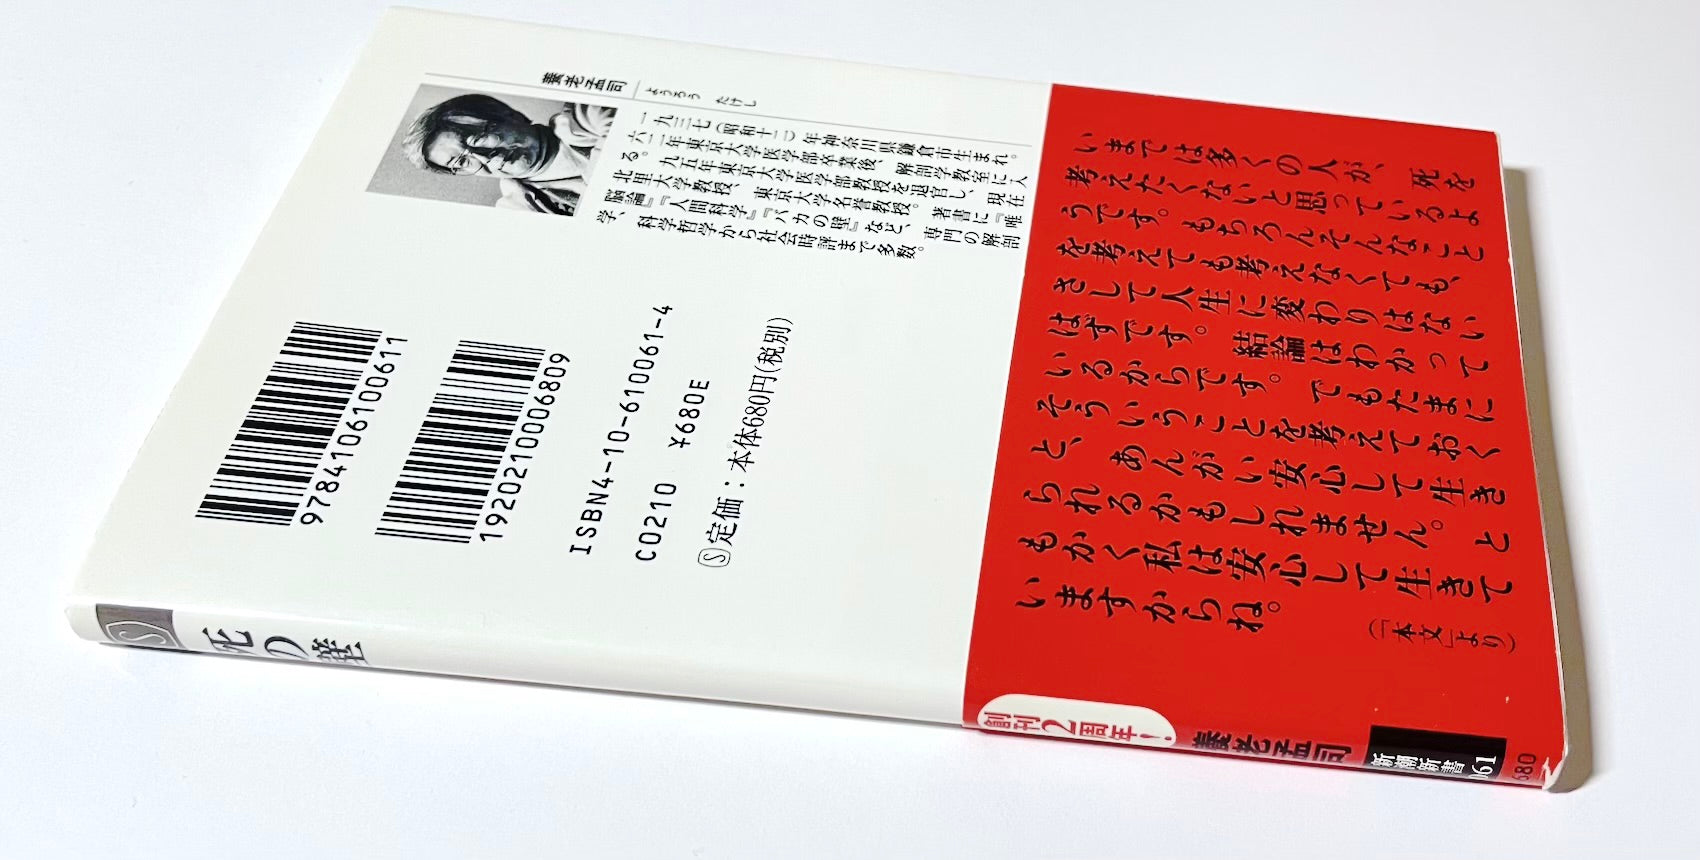 養老孟司 ようろう たけし
一九三七(昭和十二)年神奈川県鎌倉市生まれ。
六二年東京大学医学部卒業後、解剖学教室に入
る。九五年東京大学医学部教授を退官し、現在
北里大学教授、東京大学名誉教授。著書に『唯
脳論』『人間科学』『バカの壁』など、専門の解剖
学、科学哲学から社会時評まで多数。
9784106100611
1920210006809
ISBN4-10-610061-4
C0210 ¥680E
Ⓢ定価:本体680円(税別)
いまでは多くの人が、死を
考えたくないと思っているよ
うです。もちろんそんなこと
を考えても考えなくても、
さして人生に変わりはない
はずです。結論はわかって
いるからです。でもたまに
そういうことを考えておく
と、あんがい安心して生き
られるかもしれません。と
もかく私は安心して生きて
いますからね。
(「本文」より)
S
死の壁
創刊2周年!
養老孟司
新潮新書
061
680